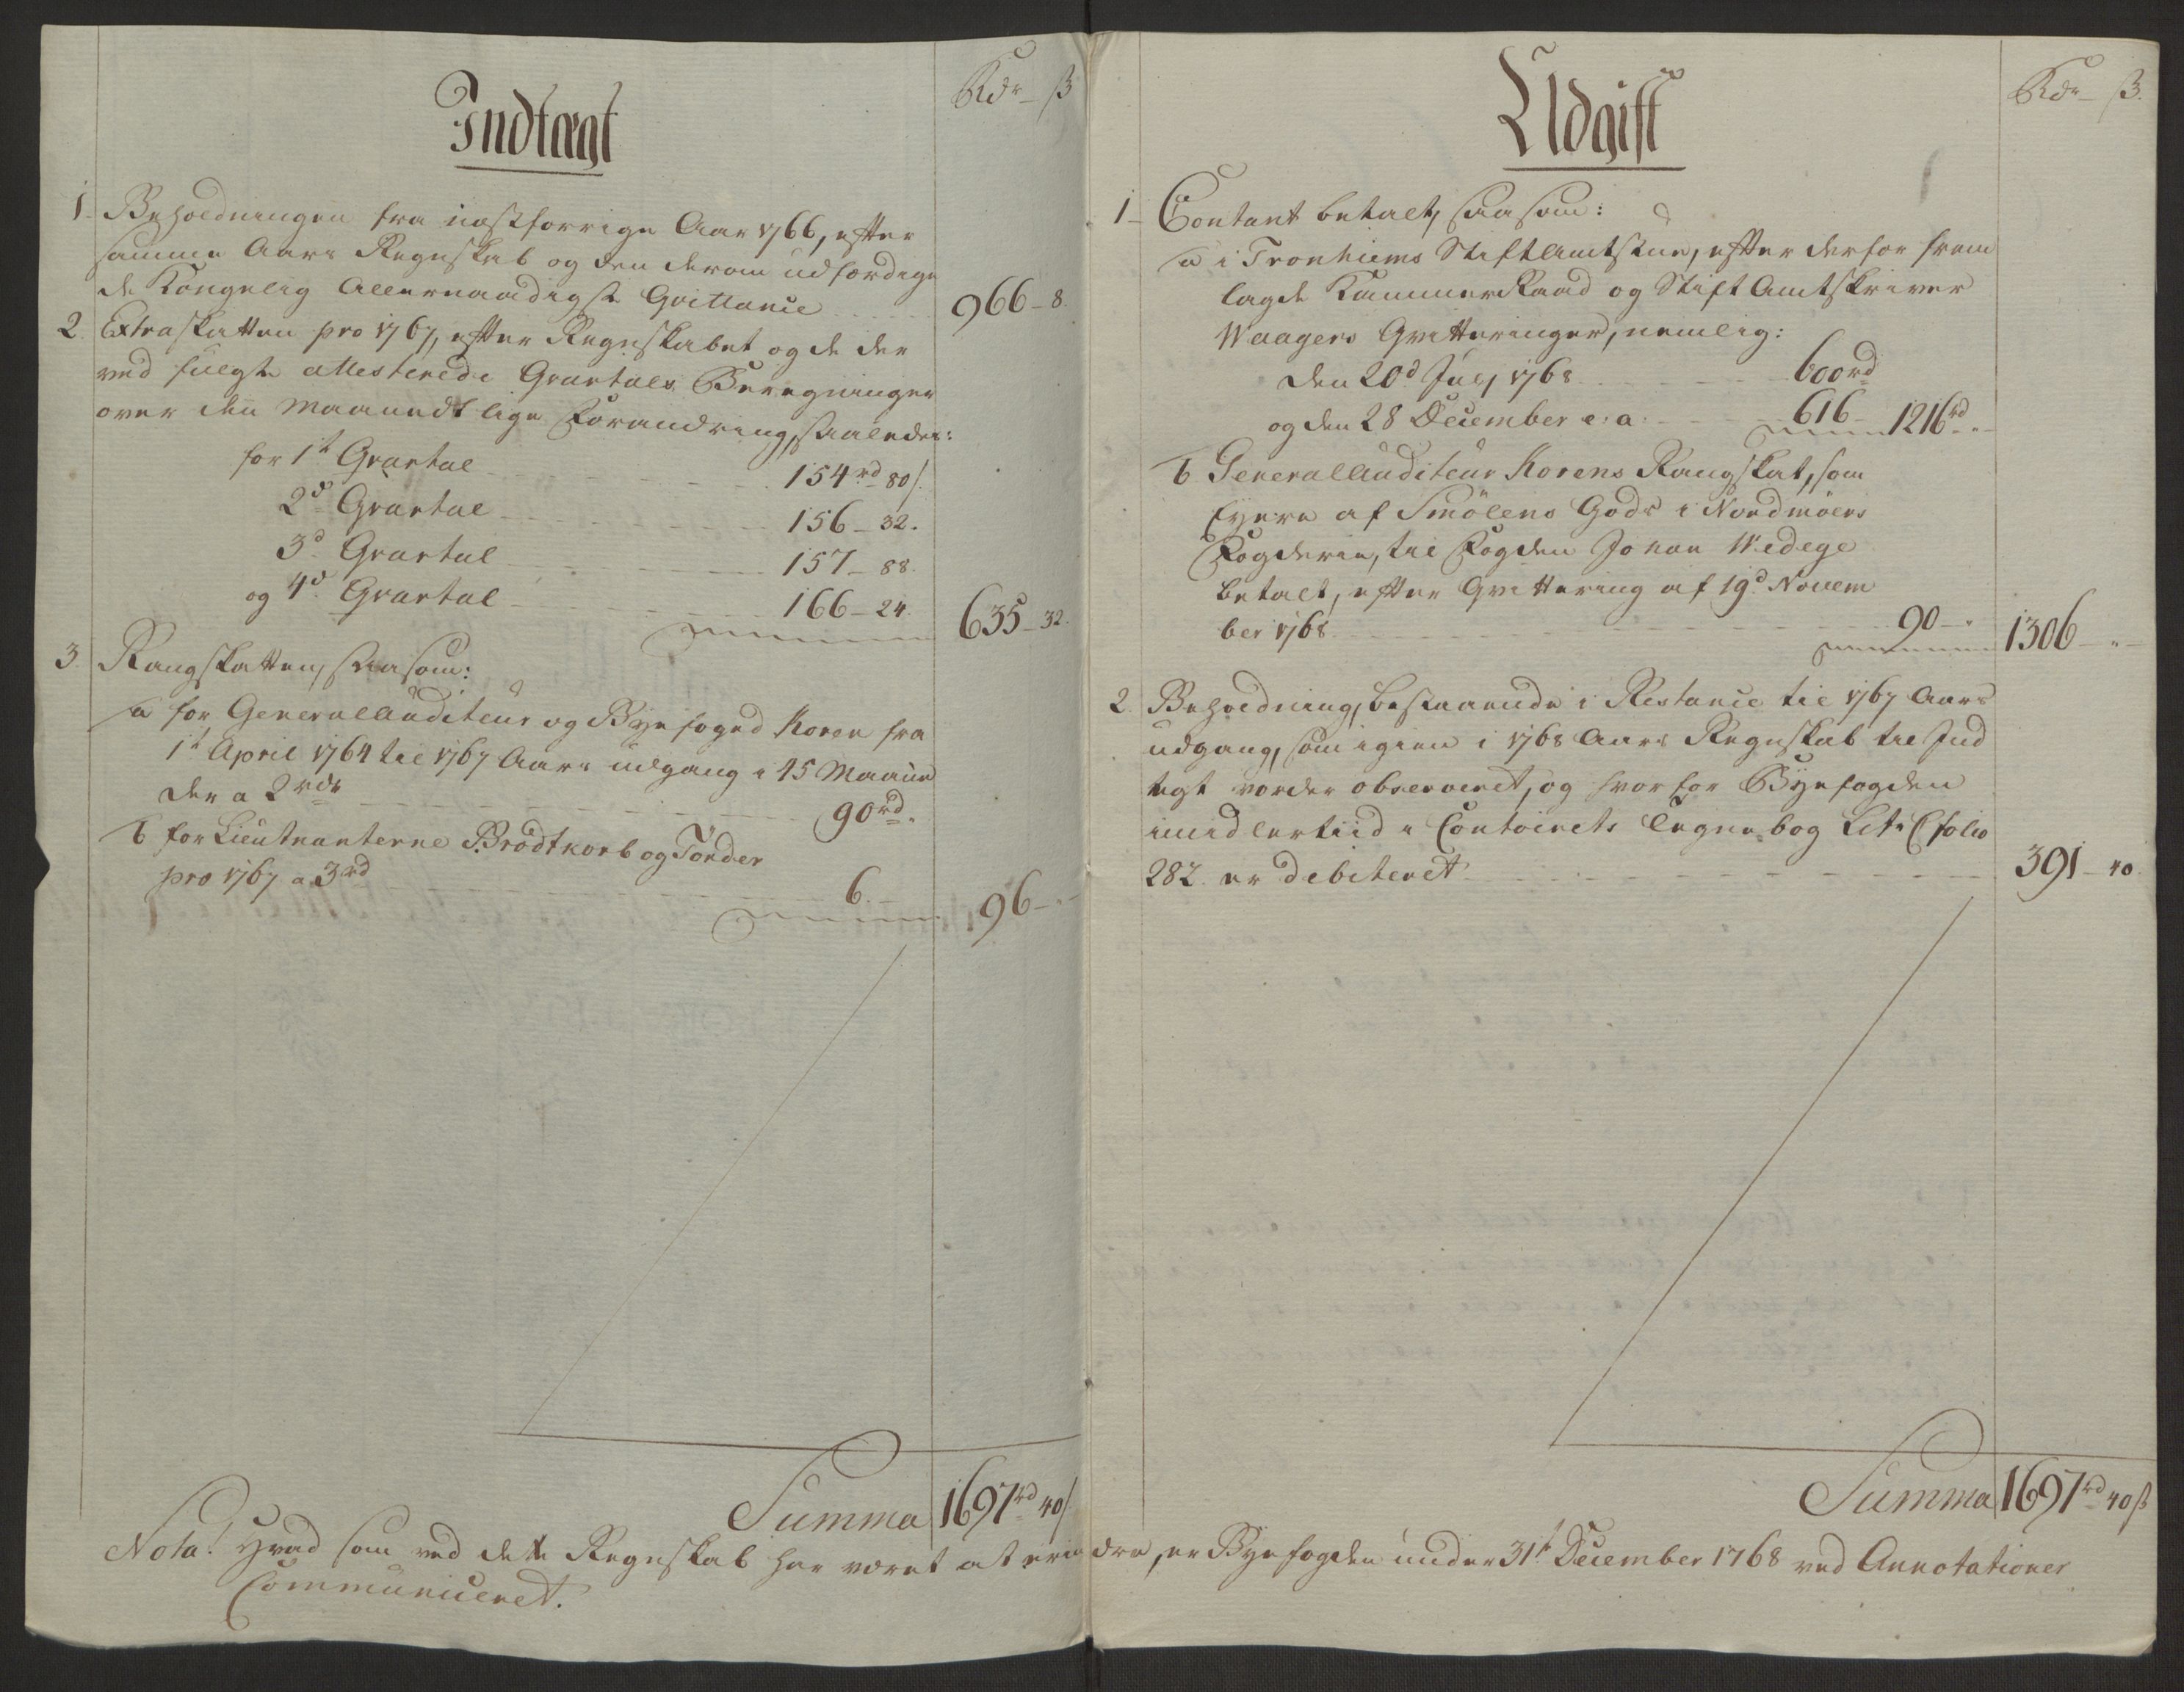 Indtægt
Rdr - ß
1. Beholdningen fra næstforrige Aar 1766, efter
samme Aars Regnskab og den derom udfærdige
de Kongelig Allernaadigste Qvittance 966 - 8.
2. Extraskatten pro 1767, efter Regnskabet og de der
ved fulgte attesterede Qvartals Beregninger
over den Maanedtlige Forandring, saaledes:
for 1t Qvartal 154rd 80ß.
2d Qvartal 156 - 32.
3d Qvartal 157 - 88.
og 4d Qvartal 166 - 24. 635 - 32.
3. Rangskatten, saasom:
a for Generalauditeur og Byefoged Koren fra
1t April 1764 til 1767 Aars udgang i 45 Maane
der a 2rdr 90rd.
b for Lieutnanterne P. Brodtkorb og Tønder
pro 1767 a 3rd 6. - 96 - . -
Summa 1697rd 40ß
Udgift
Rdr - ß.
1 - Contant betalt, saasom:
a i Tronhiems Stiftamtstue, efter derfor frem
lagde KammerRaad og StiftAmtskriver
Waagers Qvitteringer, nemlig:
den 20d July 1768 600rd
og den 28 December e: a: 616 1216rd . -
b GeneralAuditeur Korens Rangskat, som
Eyere af Smölens Gods i Nordmöers
Fogderie, til Fogden Johan Wedege
betalt, efter Qvittering af 19d Novem
ber 1768 90 - . 1306 - . -
2. Beholdning, bestaaende i Restance til 1767 Aars
udgang, som igien i 1768 Aars Regnskab til Ind
tegt vorder observeret, og hvorfor Byefogden
imidlertiid i Contoirets Tegnebog Lit: C folio
282. er debiteret 391 - 40.
Summa 1697rd 40ß
Nota! Hvad som ved dette Regnskab har været at erindre, er Byefogden under 31t December 1768 ved Annotationer
Communiceret.